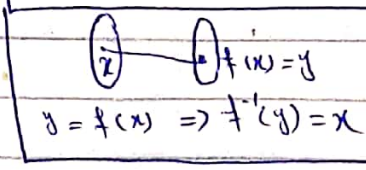 x f(x)=y
y = f(x) => f⁻¹(y) = x